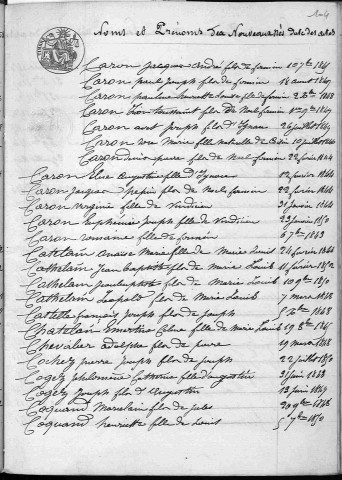 Noms et Prénoms des Nouveaux-nés Date des actes
Caron Jacques André fils de firmin 10 7bre 184
Caron paul Joseph fils de firmin 18 avril 1849
Caron pauline henriette Louise fille de firmin 2 8bre 1848
Caron Léon toussaint fils de Noel firmin 1er 9bre 1849
Caron Joseph fils d'Ignace 26 juillet 1844
Caron Marie fille naturelle de 10 juillet
Caron pierre fils de Noel firmin 22 février 1844
Caron Elise Augustine fille d'Ignace 12 février 1846
Caron Jacques fils de Noel firmin 22 février 1846
Caron Virginie fille de Vindicien 31 janvier 1844
Caron Euphémie Joseph fille de Vindicien 23 janvier 1850
Caron romaine fille de firmin 6 7bre 1843
Catelain Marie fille de Marie Louise 24 février 1844
Cathelain Jean baptiste fils de Marie Louise 11 février 1852
Cathelain fils de Marie Louise 10 9bre 1850
Cathelain Léopold fils de Marie Louise 7 mars 1848
Catelette françois Joseph fils de Joseph 5 8bre 1848
Chatelain Ernestine Celine fille de Marie Louise 19 8bre 1847
Chevalier Adolphe fils de pierre 19 mars 1848
Cochez pierre Joseph fils de Joseph 22 juillet 1850
Cogez philomène Catherine fille d'augustin 3 juin 1848
Cogez Joseph fils d'Augustin 13 juin 1847
Coquand fils de jules 20 9bre 1848
Coquand henriette fille de Louis 5 7bre 1850